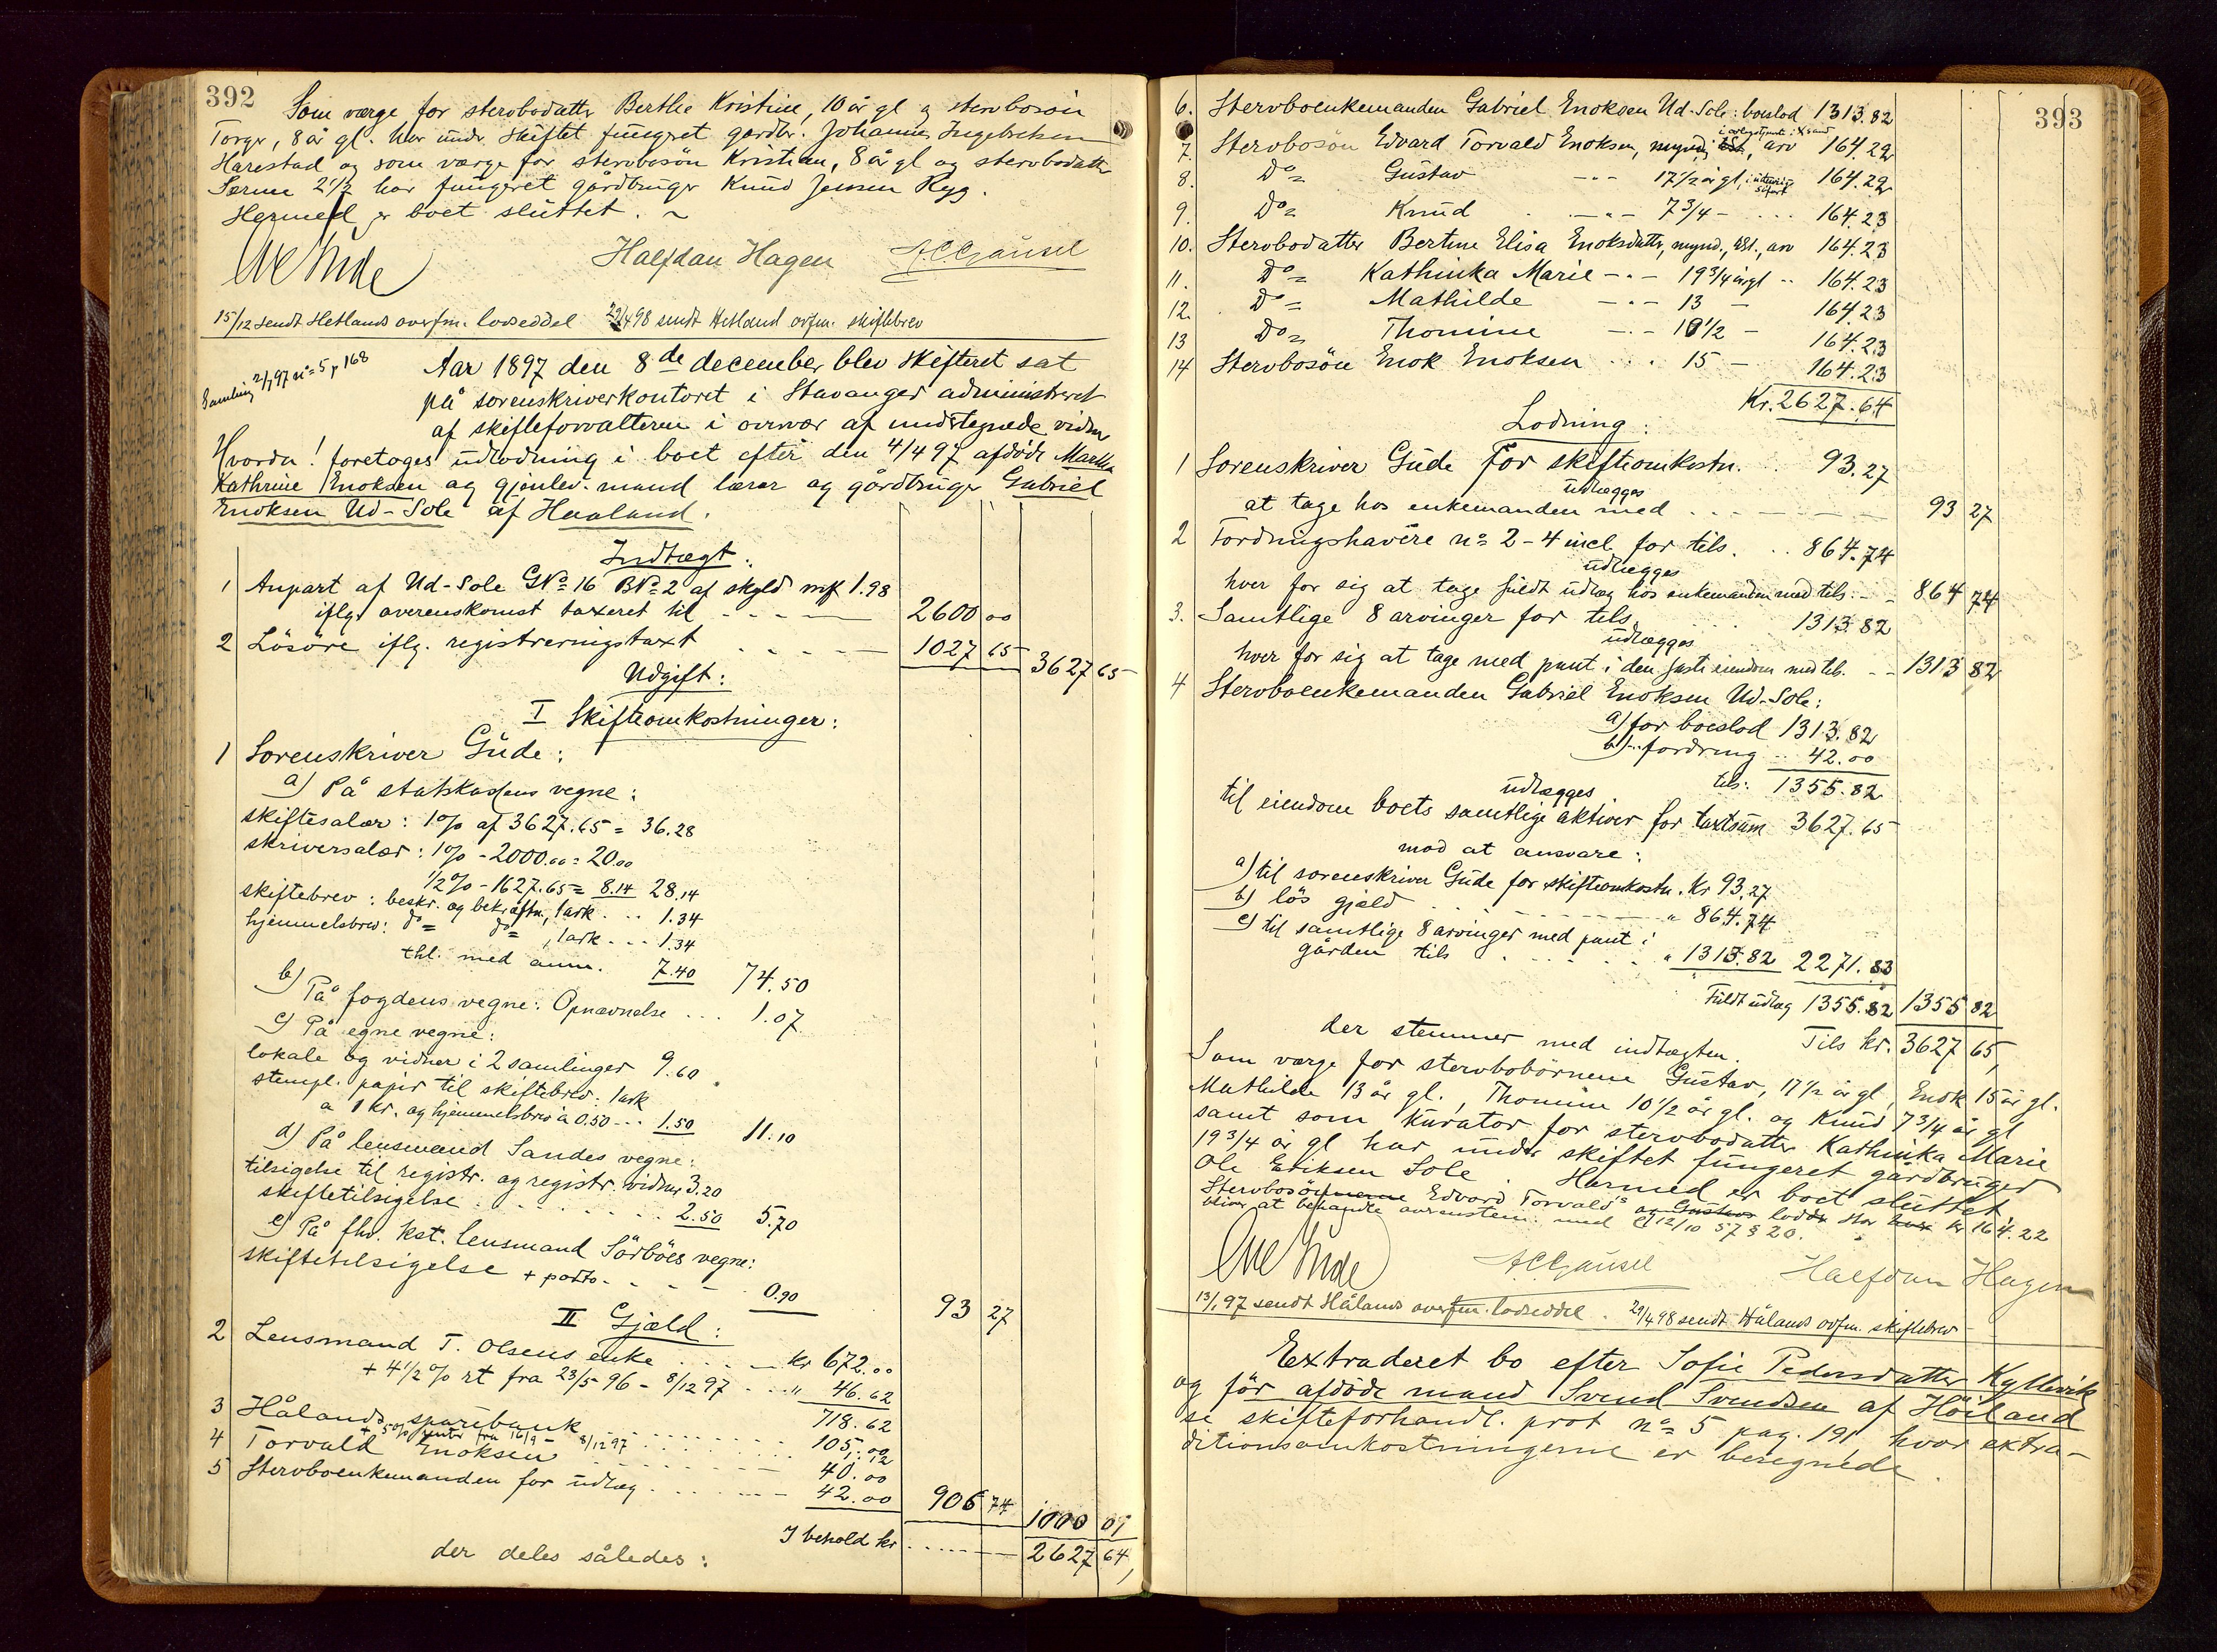 392
Som værge for stervbodatter Berthe Kristine, 10 år gl og stervbosön
Torger, 8 år gl. har under skiftet fungeret gårdbr. Johannes Ingebretsen
Harestad og som værge for stervbosön Kristian, 8 år gl og stervbodatter
Serine 2 1/2 har fungeret gårdbruger Knud Jensen Ryg.
Hermed er boet sluttet. ~
Halfdan Hagen A C Gausel
15/12 sendt Hetlands overfm. lodseddel 29/4 98 sendt Hetland ovfm. skiftebrev
Samling 2/7 97 n° 5 p 168
Aar 1897 den 8de december blev skifteret sat
på sorenskriverkontoret i Stavanger administreret
af skifteforvalteren i overvær af undertegnede vidner
Hvorda! foretoges udlodning i boet efter den 4/4 97 afdöde Martha
Kathrine Enoksen og gjenlev. mand lærer og gårdbruger Gabriel
Enoksen Ud-Sole af Haaland.
Indtægt:
1 Anpart af Ud-Sole GN° 16 BN° 2 af skyld mk 1.98
iflg. overenskomst taxeret til - - - 2600 00
2 Lösöre iflg. registreringstaxt - - - 1027 65 3627 65
Udgift:
I Skifteomkostninger:
1 Sorenskriver Gude:
a) På statskassens vegne:
skiftesalær: 1 % af 3627.65 = 36.28
skriversalær: 1 % - 2000.00 = 20.00
1/2 % - 1627.65 = 8.14 28.14
skiftebrev: beskr. og bekræftn., 1 ark ... 1.34
hjemmelsbrev: d° d°, 1 ark ... 1.34
thl. med anm. 7.40 74.50
b) På fogdens vegne: Opnævnelse ... 1.07
c) På egne vegne:
lokale og vidner i 2 samlinger 9.60
stempl. papir til skiftebrev: 1 ark
a 1 kr. og hjemmelsbrev a 0.50 --- 1.50 11.10
d) På lensmand Sandes vegne:
tilsigelse til registr. og registr. vidner 3.20
skiftetilsigelse . . . . . 2.50 5.70
e) På fhv. kst. lensmand Sörböes vegne:
skiftetilsigelse + porto - - - 0.90 93 27
II Gjæld:
2 Lensmand T. Olsens enke . . . - kr 672.00
+ 4 1/2 % rt fra 23/5 96 - 8/12 97 - .. " 46.62
718.62
3 Hålands sparebank . . . . . . 105.00
+ 5 % renter fra 16/9 - 8/12 97 . . . 1.12
4 Torvald Enoksen . . . . - - 40.00
5 Stervboenkemanden for udlæg . . . . 42.00 906 74 1000 01
I behold kr . . . . . 2627 64
der deles således:
393
6. Stervboenkemanden Gabriel Enoksen Ud-Sole: boeslod 1313.82
7. Stervbosön Edvard Torvald Enoksen, myndig, arv 164.22
8. D° Gustav --- 17 1/2 år gl, i udenrigs söfart 164.22
9. D° Knud . - . - 7 3/4 - ... 164.23
10. Stervbodatter Bertine Elisa Enoksdatter, mynd., tilst., arv 164.23
11. D° Kathinka Marie - . - 19 3/4 år gl .. 164.23
12. D° Mathilde - . - 13 - 164.23
13 D° Thomine - . - 10 1/2 - 164.23
14 Stervbosön Enok Enoksen ... 15 - 164.23
Kr. 2627.64
Lodning:
1 Sorenskriver Gude for skifteomkostn. .. 93.27
udlægges
at tage hos enkemanden med . . - - - 93 27
2 Fordringshavere n° 2-4 incl. for tils. .. 864.74
udlægges
hver for sig at tage fuldt udlæg hos enkemanden med tils. - - 864 74
3. Samtlige 8 arvinger for tils. . . 1313.82
udlægges
hver for sig at tage med pant i den faste eiendom med tils. - - 1313 82
4 Stervboenkemanden Gabriel Enoksen Ud-Sole:
a) for boeslod 1313.82
b) - fordring .. 42.00
tils: 1355.82
udlægges
til eiendom boets samtlige aktiver for taxtsum 3627.65
mod at ansvare:
a) til sorenskriver Gude for skifteomkostn. Kr 93.27
b) lös gjæld . . - - - - " 864.74
c) til samtlige 8 arvinger med pant i
gården tils . . . . . " 1313.82 2271.83
Fuldt udlæg 1355.82 1355 82
der stemmer med indtægten. Tils kr. 3627 65,
Som værge for stervbobörnene Gustav, 17 1/2 år gl, Enok 15 år gl.
Mathilde 13 år gl., Thomine 10 1/2 år gl. og Knud 7 3/4 år gl
samt som kurator for stervbodatter Kathinka Marie
19 3/4 år gl har under skiftet fungeret gårdbruger
Ole Eriksen Sole Hermed er boet sluttet.
Stervbosönnerne Edvard Torvalds og Gustavs lodder stor hver kr 164.22
bliver at behandle overenstem. med L 12/10 57 § 20.
A C Gausel Halfdan Hagen
13/1 97 sendt Hålands overfm. lodseddel . 29/4 98 sendt Hålands ovfm. skiftebrev
Extraderet bo efter Sofie Pedersdatter Kyllevik
og för afdöde mand Svend Svendsen af Höiland
se skifteforhandl. prot n° 5 pag. 191 hvor extra-
ditionsomkostningerne er beregnede.